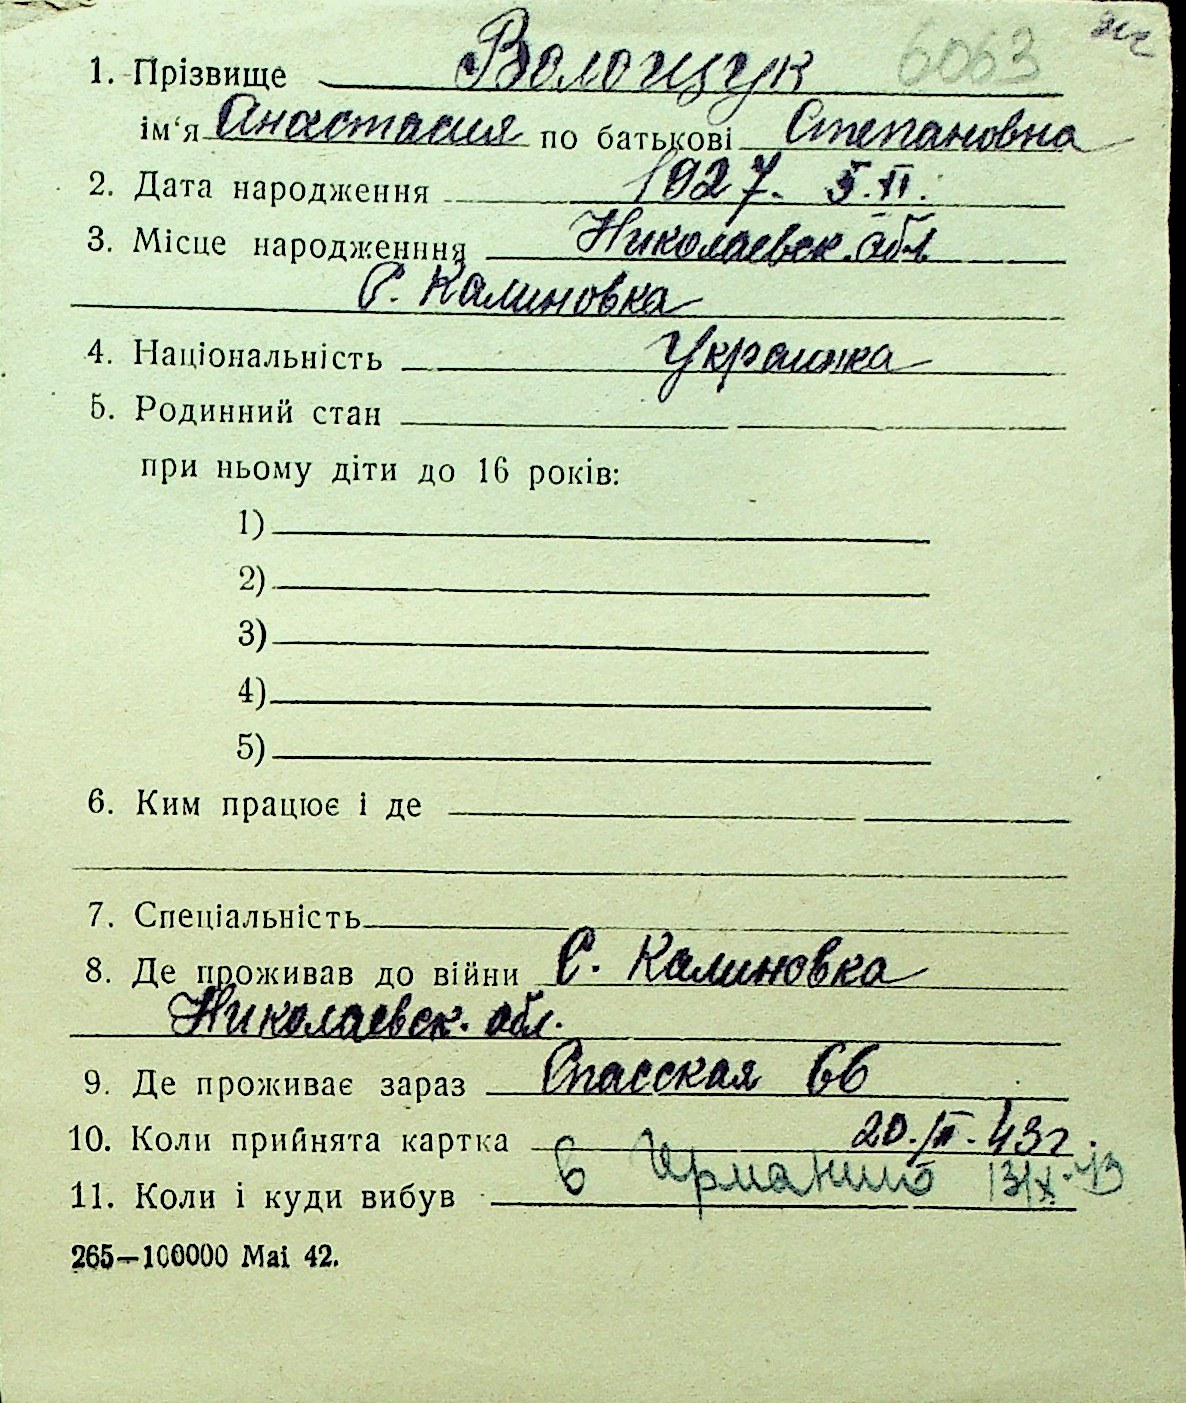 1. Прізвище Волощук 6063
ім'я Анастасия по батькові Степановна
2. Дата народження 1927. 5.II.
3. Місце народженння Николаевск. обл
С. Калиновка
4. Національність Украинка
5. Родинний стан
при ньому діти до 16 років:
1)
2)
3)
4)
5)
6. Ким працює і де
7. Спеціальність
8. Де проживав до війни С. Калиновка
Николаевск. обл.
9. Де проживає зараз Спасская 66
10. Коли прийнята картка 20.II.43г.
11. Коли і куди вибув в Германию 13/X-43
265—100000 Mai 42.